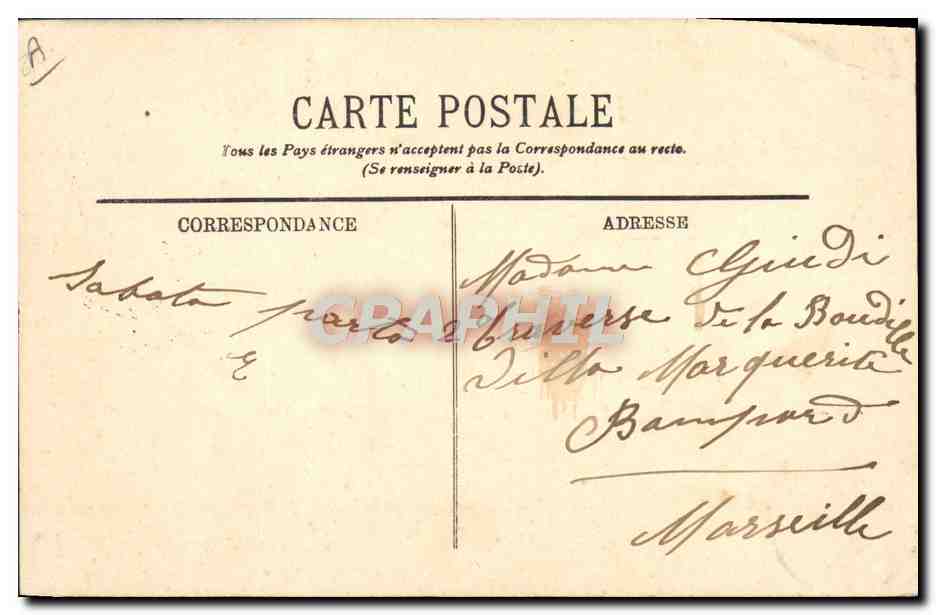 A
CARTE POSTALE
Tous les Pays étrangers n'acceptent pas la Correspondance au recto.
(Se renseigner à la Poste).
CORRESPONDANCE
Sabato parto
E
ADRESSE
Madame Giudi
2 traverse de la Boudille
Villa Marguerite
Bompard
Marseille
CPAPHIL